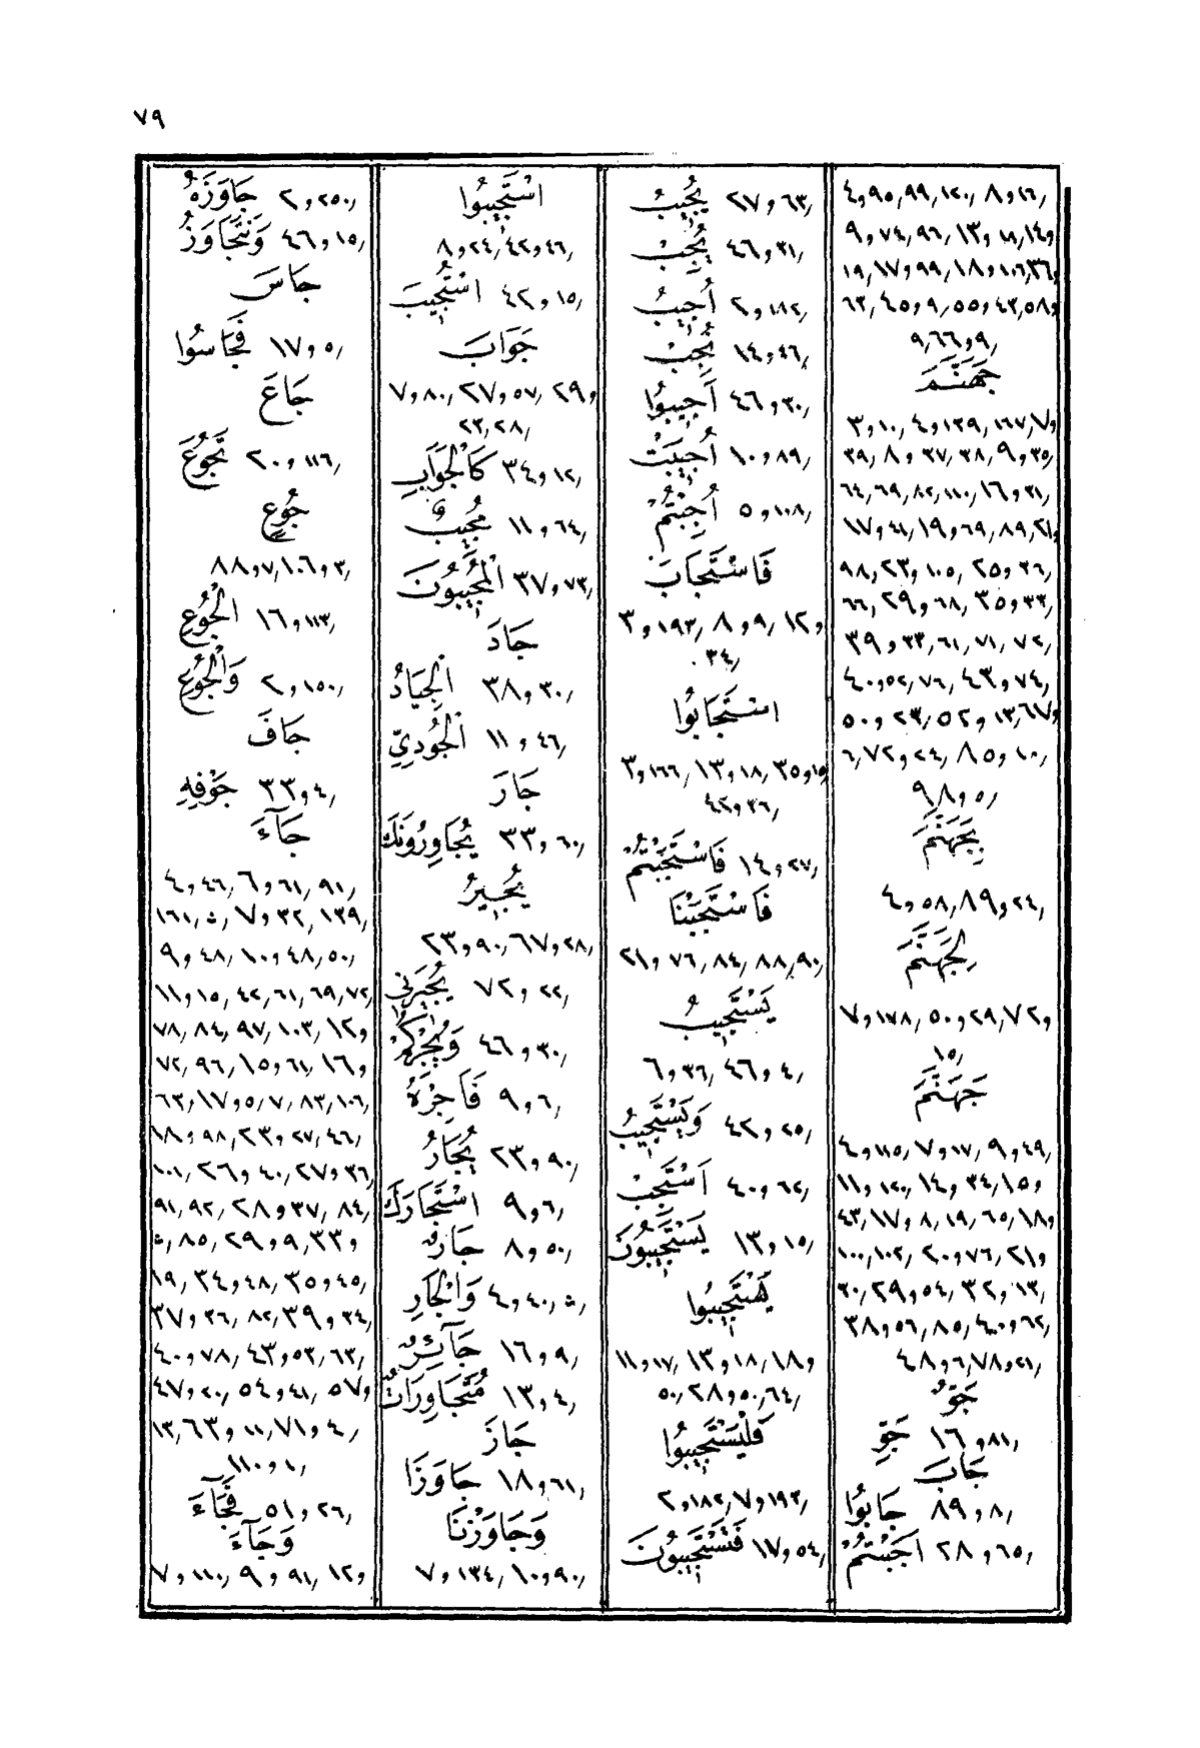 ٧٩
٤و٩٥,٩٩,١٢٠, ٨و١٦,
٩و٧٤,٩٦, ١٣و١٨, ١٤و
١٩, ١٧و٩٩, ١٨و١٠٦, ٣٦و
٦٣, ٤٥و٩, ٥٥و٤٣, ٥٨و
٩, ٦٦و٩,
جَهَنَّمَ
٣و١٠, ٤و١٣٩,١٦٧, ٧و
٣٩, ٨و٣٧,٣٨, ٩و٣٥,
٦٤,٦٩,٨٢,١١٠, ١٦و٣١,
١٧و٤١, ١٩و٦٩,٨٩, ٢١و
٩٨, ٢٣و١٠٥, ٢٥و٣٦,
٦٦, ٢٩و٦٨, ٣٥و٣٣,
٣٩و٣٣,٦١,٧١,٧٢,
٤٠و٥٢,٧٦, ٤٣و٧٤,
٥٠و٢٣, ٥٢و١٣, ٦٧و
٦, ٧٢و٢٤, ٨٥و١٠,
٩٨و٥,
بِجَهَنَّمَ
٤و٥٨, ٨٩و٢٤,
لِجَهَنَّمَ
٧و١٧٨, ٥٠و٢٩, ٧٢و
١٥,
جَهَنَّمَ
٤و١١٥, ٧و١٧, ٩و٤٩,
١١و١٢٠, ١٤و٣٤, ١٥و
٤٣, ١٧و٨, ١٩,٦٥, ١٨و
١٠٠,١٠٢, ٢٠و٧٦, ٢١و
٣٠, ٢٩و٥٤, ٣٢و١٣,
٣٨و٥٦,٨٥, ٤٠و٦٢,
٤٨و٦, ٧٨و٢١,
جَوٌّ
١٦و٨١, جَوِّ
جَابَ
٨٩و٨, جَابُوا
٢٨و٦٥, أَجَبْتُمُ
٢٧و٦٣, يُجِيبُ
٤٦و٣١, يُجِبْ
٢و١٨٢, أُجِيبُ
١٤و٤٦, نُجِبْ
٤٦و٣٠, أَجِيبُوا
١٠و٨٩, أُجِيبَتْ
٥و١٠٨, أُجِبْتُمْ
فَاسْتَجَابَ
٣و١٩٣, ٨و٩, ١٢و
٣٤,
اسْتَجَابُوا
٣و١٦٦, ١٣و١٨, ٣٥و١٥
٤٢و٣٦,
١٤و٢٧, فَاسْتَجَبْتُمْ
فَاسْتَجَبْنَا
٢١و٧٦,٨٤,٨٨,٩٠,
يَسْتَجِيبُ
٦و٣٦, ٤٦و٤,
٤٢و٢٥, وَيَسْتَجِيبُ
٤٠و٦٢, أَسْتَجِبْ
١٣و١٥, يَسْتَجِيبُونَ
يَسْتَجِيبُوا
١١و١٧, ١٣و١٨, ١٨و
٥٠, ٢٨و٥٠,٦٤,
فَلْيَسْتَجِيبُوا
٢و١٨٢, ٧و١٩٣,
١٧و٥٤, فَتَسْتَجِيبُونَ
اسْتَجِيبُوا
٨و٢٤, ٤٢و٤٦,
٤٢و١٥, اسْتُجِيبَ
جَوَابَ
٧و٨٠, ٢٧و٥٧, ٢٩و
٢٣,٢٨,
٣٤و١٢, كَالْجَوَابِ
١١و٦٤, مُجِيبٌ
٣٧و٧٣, الْمُجِيبُونَ
جَادَ
٣٨و٣٠, الْجِيَادُ
١١و٤٦, الْجُودِيِّ
جَارَ
٣٣و٦٠, يُجَاوِرُونَكَ
يُجِيرُ
٢٣و٩٠, ٦٧و٢٨,
٧٢و٢٢, يُجِيرَنِي
٤٦و٣٠, وَيُجِرْكُمْ
٩و٦, فَأَجِرْهُ
٢٣و٩٠, يُجَارُ
٩و٦, اسْتَجَارَكَ
٨و٥٠, جَارٌ
٤و٤٠, وَالْجَارِ
١٦و٩, جَآئِرٌ
١٣و٤, مُتَجَاوِرَاتٌ
جَازَ
١٨و٦١, جَاوَزَا
وَجَاوَزْنَا
٧و١٣٤, ١٠و٩٠,
٢و٢٥٠, جَاوَزَهُ
٤٦و١٥, وَنَتَجَاوَزُ
جَاسَ
١٧و٥, فَجَاسُوا
جَاعَ
٢٠و١١٦, تَجُوعَ
جُوعٍ
٨٨و٧, ١٠٦و٣,
١٦و١١٣, الْجُوعِ
٢و١٥٠, وَالْجُوعِ
جَافَ
٣٣و٤, جَوْفِهِ
جَآءَ
٤و٤٦, ٦و٦١,٩١,
١٦١, ٧و٣٢,١٣٩,
٩و٤٨, ١٠و٤٨,٥٠,
١١و١٥,٤٢,٦١,٦٩,٧٢,
٧٨,٨٤,٩٧,١٠٣, ١٢و
٧٢,٩٦, ١٥و٦١, ١٦و
٦٣, ١٧و٥,٧,٨٣,١٠٦,
١٨و٩٨, ٢٣و٢٧,٤٦,
١٠١, ٢٦و٤٠, ٢٧و٣٦,
٩١,٩٢, ٢٨و٣٧,٨٤,
٨٥, ٢٩و٩, ٣٣و
١٩, ٣٤و٤٨, ٣٥و٤٥,
٣٧و٣٦,٨٢, ٣٩و٣٤,
٤٠و٧٨, ٤٣و٥٣,٦٣,
٤٧و٢٠, ٥٤و٤١, ٥٧و
١٣, ٦٣و١١, ٧١و٤,
١١٠و١,
٥١و٢٦, فَجَآءَ
وَجَآءَ
٧و١١٠, ٩و٩١, ١٢و